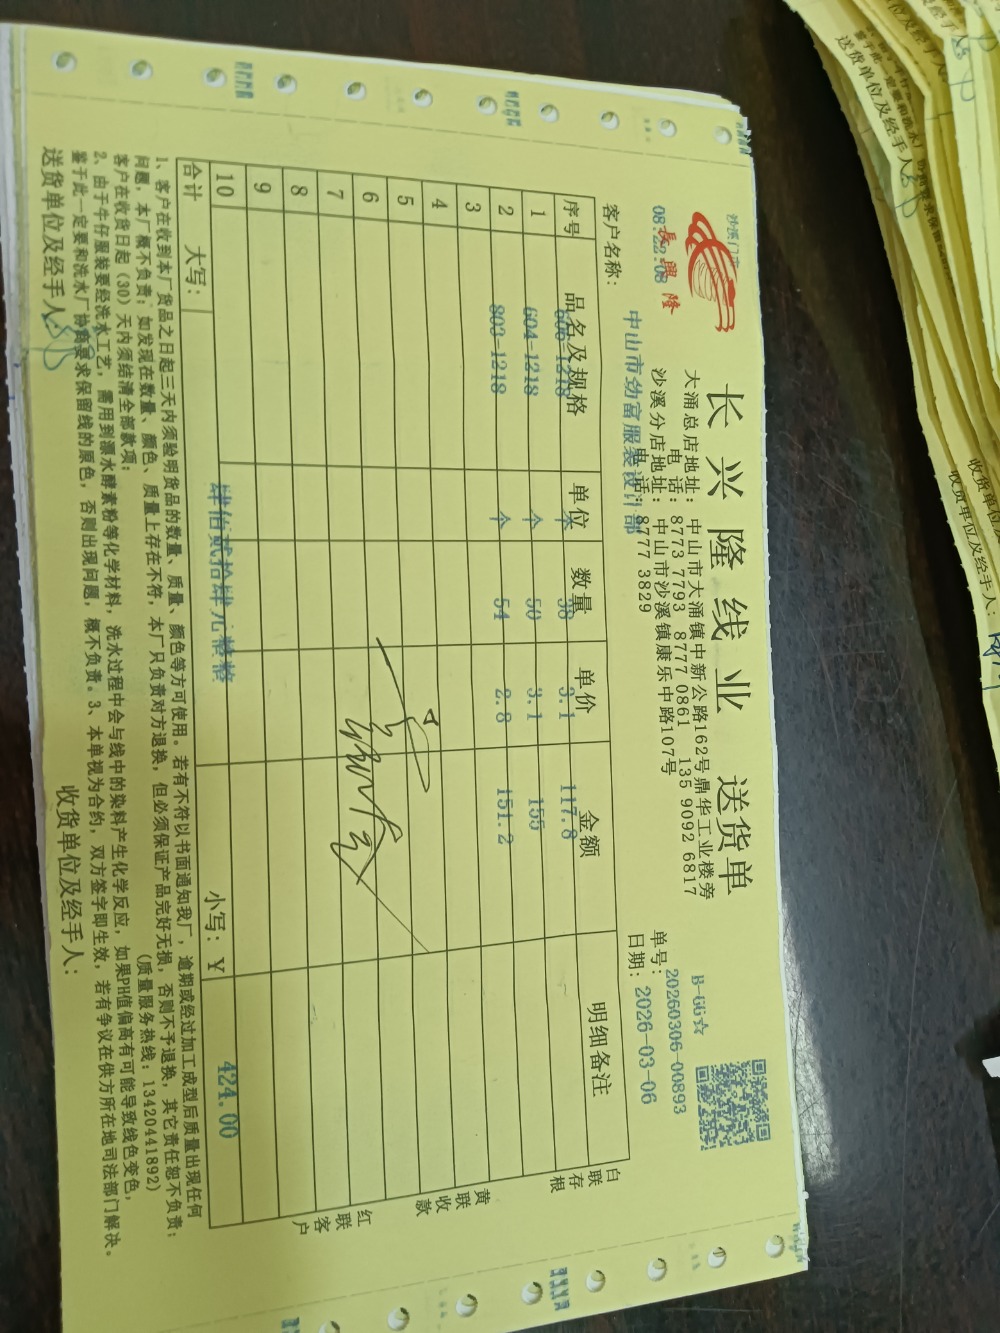 长兴隆线业 送货单
沙溪门市
長興隆
08:22:08
大涌总店地址: 中山市大涌镇中新公路162号鼎华工业楼旁
电话: 8773 7793 8777 0861 135 9092 6817
沙溪分店地址: 中山市沙溪镇康乐中路107号
电话: 8777 3829
B-GG☆
单号: 20260306-00893
客户名称: 中山市劲富服装设计部
日期: 2026-03-06
序号 品名及规格 单位 数量 单价 金额 明细备注
606-1218 个 38 3.1 117.8
1 604-1218 个 50 3.1 155
2 803-1218 个 54 2.8 151.2
3
4
5
6
7
8
9
10
合计 大写: 肆佰贰拾肆元整 小写: ¥ 424.00
白联存根
黄联收款
红联客户
1、客户在收到本厂货品之日起三天内须验明货品的数量、质量、颜色等方可使用。若有不符以书面通知我厂,逾期或经过加工成型后质量出现任何
问题,本厂概不负责;如发现在数量、颜色、质量上存在不符,本厂只负责对方退换,但必须保证产品完好无损,否则不予退换,其它责任恕不负责;
客户在收货日起(30)天内须结清全部款项; (质量服务热线: 13420441892)
2、由于牛仔服装要经洗水工艺,需用到漂水酵素粉等化学材料,洗水过程中会与线中的染料产生化学反应,如果PH值偏高有可能导致线色变色,
鉴于此一定要和洗水厂协商要求保留线的原色,否则出现问题,概不负责。3、本单视为合约,双方签字即生效,若有争议在供方所在地司法部门解决。
送货单位及经手人: 收货单位及经手人:
送货单位及经手人
收货单位及经手人: